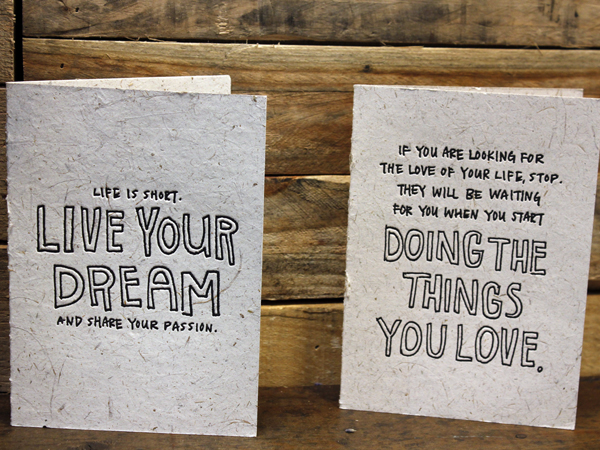 LIFE IS SHORT.
LIVE YOUR
DREAM
AND SHARE YOUR PASSION.
IF YOU ARE LOOKING FOR
THE LOVE OF YOUR LIFE, STOP.
THEY WILL BE WAITING
FOR YOU WHEN YOU START
DOING THE
THINGS
YOU LOVE.